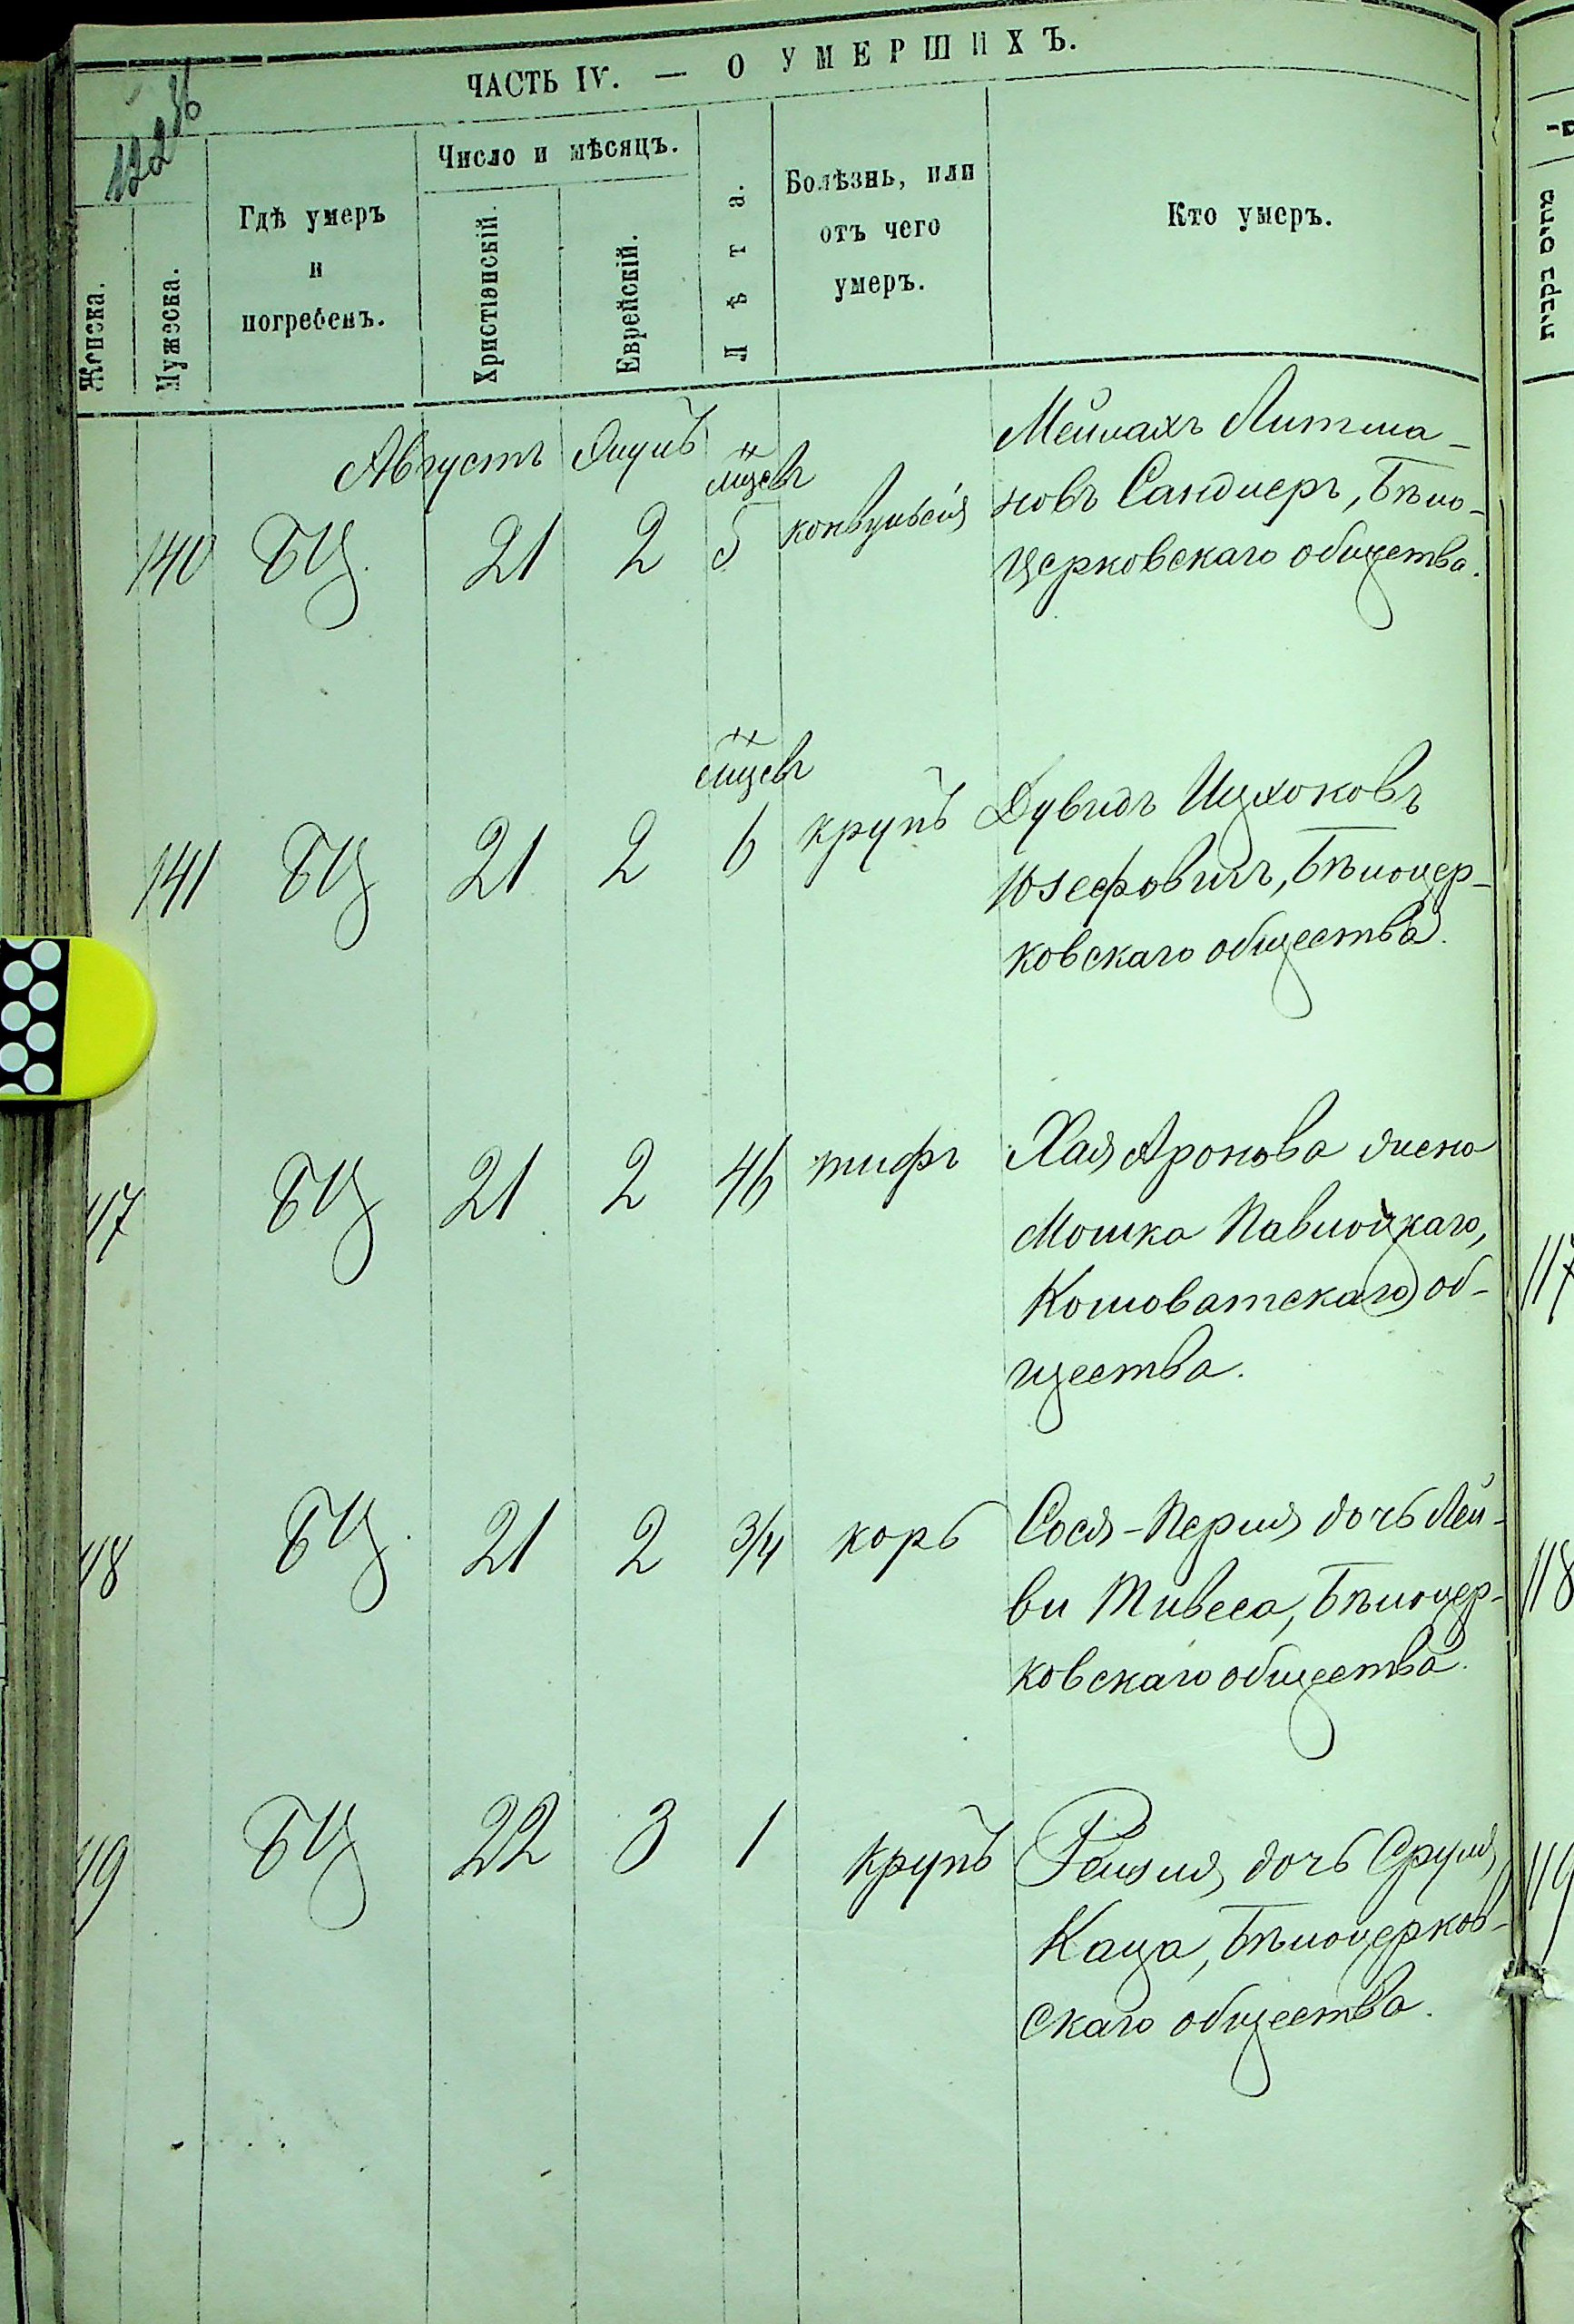 ЧАСТЬ IV. — О УМЕРШИХЪ.
Женска.
Мужеска.
Гдѣ умеръ
и
погребенъ.
Число и мѣсяцъ.
Христіянскій.
Еврейскій.
Лѣта.
Болѣзнь, или
отъ чего
умеръ.
Кто умеръ.
Августъ Элулъ
140 БЦ. 21 2 мцсвъ 5 конвульсія
Мейлахъ Литма-
новъ Сандлеръ, Бѣло-
церковскаго общества.
141 БЦ 21 2 мцевъ 6 крупъ
Дувидъ Ицхоковъ
Юзефовичъ, Бѣлоцер-
ковскаго общества.
117 БЦ 21 2 46 тифъ
Хая Аронова жена
Мошка Паволоцкаго,
Кошоватскаго об-
щества.
118 БЦ. 21 2 3/4 корь
Сося-Перля дочь Лей-
би Тивеса, Бѣлоцер-
ковскаго общества.
119 БЦ 22 3 1 крупъ
Рейзля дочь Сруля
Каца, Бѣлоцерков-
скаго общества.
117
118
119